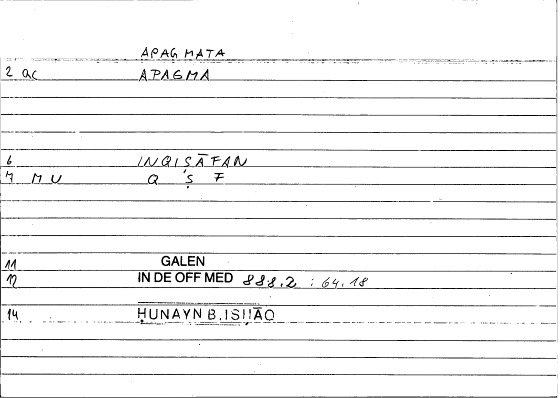 APAGMATA
2 ac APAGMA
6 INQISĀFAN
7 M U Q Ṣ F
11 GALEN
12 IN DE OFF MED 888.2 : 64.18
14 ḤUNAYN B. ISḤĀQ